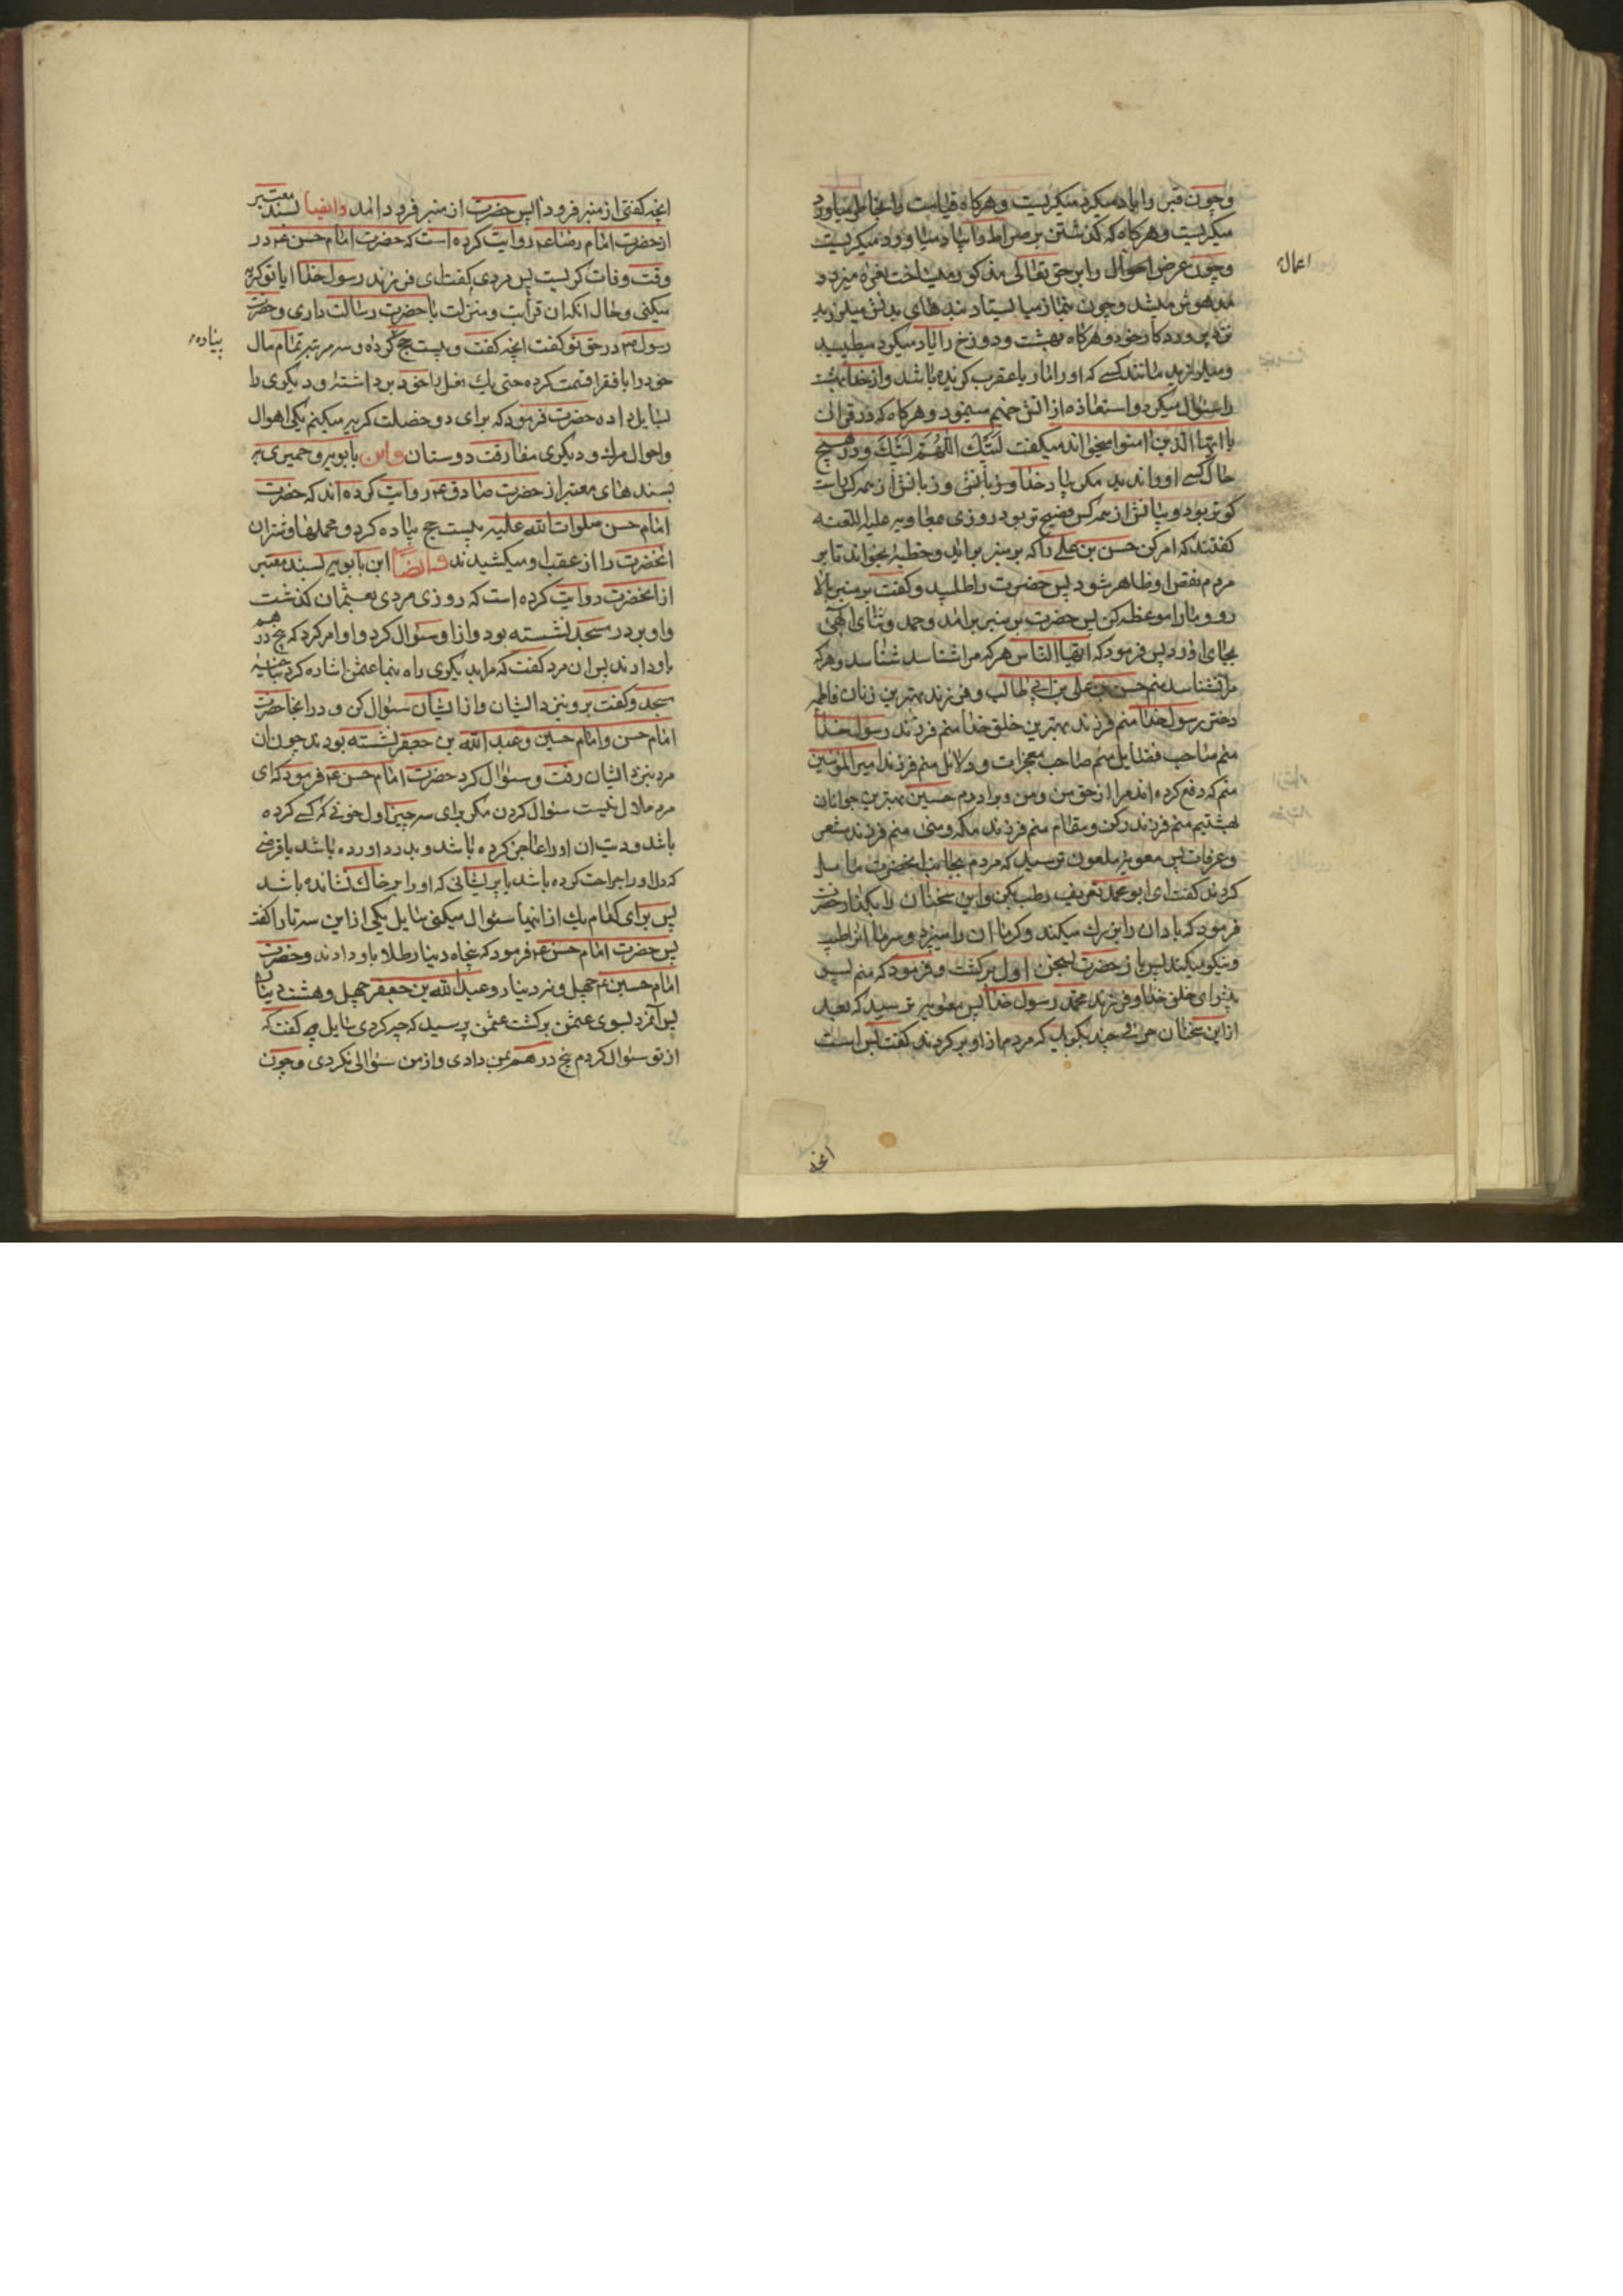 وچون قبر را یاد میکرد میکریست وهرکاه قیامت را بخاطر میاورد
میکریست وهرکاه که کذشتن بر صراط را بیاد میاورد میکریست
وچون عرض احوال را بر حق تعالی مذکور میساخت نعره میزد و
مدهوش میشد وچون بنماز میایستاد بندهای بدنش میلرزید
نزد پروردکار خود وهرکاه بهشت ودوزخ را یاد میکرد میطپید
ومیلرزید مانند کسی که او را مار یا عقرب کزیده باشد واز خدا بهشت
را سئوال میکرد و استعاذه از اتش جهنم مینمود وهرکاه که در قران
یا ایها الذین امنوا میخواند میکفت لبیک اللهم لبیک ودر هیچ
حال کسی او را ندید مکر بیاد خدا و زبانش از همه کس راست
کوتر بود وبیانش از همه کس فصیح تر بود روزی بمعاویه علیه اللعنه
کفتند که امر کن حسن بن علی را که بر منبر براید وخطبه بخواند تا بر
مردم نقص او ظاهر شود پس حضرت را طلبید وکفت بر منبر بالا
رو و ما را موعظه کن پس حضرت بر منبر برامد وحمد وثنای الهی
بجای اورد پس فرمود که ایها الناس هرکه مرا شناسد شناسد وهرکه
مرا نشناسد منم حسن بن علی بن ابی طالب وفرزند بهترین زنان فاطمه
دختر رسول خدا منم فرزند بهترین خلق خدا منم فرزند رسول خدا
منم صاحب فضایل منم صاحب معجزات ودلائل منم فرزند امیر المؤمنین
منم که دفع کرده اند مرا از حق من ومن وبرادرم حسین بهترین جوانان
بهشتیم منم فرزند رکن ومقام منم فرزند مکه ومنی منم فرزند مشعر
وعرفات پس معویه ملعون ترسید که مردم بجانب انحضرت مایل
کردند کفت ای ابو محمد تعریف رطب بکن واین سخنان را بکذار حضرت
فرمود که باد ان را بزرک میکند وکرما ان را میپزد وسرما انرا طیب
ونیکو میکند پس باز حضرت بسخن اول برکشت وفرمود که منم
پیشوای خلق خدا وفرزند محمد رسول خدا پس معویه ترسید که بعد
از این سخنان حرفی چند بکوید که مردم از او برکردند کفت بس است
اعمال
انچه
انچه کفتی از منبر فرود ا پس حضرت از منبر فرود امد وایضا بسند معتبر
از حضرت امام رضا ع روایت کرده است که حضرت امام حسن ع در
وقت وفات کریست پس مردی کفت ای فرزند رسول خدا ایا تو کریه
میکنی وحال انکه ان قرابت ومنزلت با حضرت رسالت داری وحضرت
رسول ص در حق تو کفت انچه کفت وبیست حج کرده وسه مرتبه تمام مال
خود را با فقرا قسمت کرده حتی یک نعل با خود برداشته ودیکری را
بسایل داده حضرت فرمود که برای دو خصلت کریه میکنم یکی اهوال
واحوال مرک ودیکری مفارقت دوستان وابن بابویه وحمیری به
بسندهای معتبر از حضرت صادق ع روایت کرده اند که حضرت
امام حسن صلوات الله علیه بیست حج پیاده کرد ومحملها وشتران
انحضرت را از عقب او میکشیدند وایضا ابن بابویه بسند معتبر
از انحضرت روایت کرده است که روزی مردی بعثمان کذشت
واو بر در مسجد نشسته بود واز او سئوال کرد واو امر کرد که پنج درهم
باو دادند پس ان مرد کفت که مرا بدیکری راه بنما عثمن اشاره کرد بناحیه
مسجد وکفت برو بنزد ایشان واز ایشان سئوال کن ودر انجا حضرت
امام حسن وامام حسین وعبد الله بن جعفر نشسته بودند چون ان
مرد بنزد ایشان رفت وسئوال کرد حضرت امام حسن ع فرمود که ای
مرد حلال نیست سئوال کردن مکر برای سه چیز اول خونی که کسی کرده
باشد ودیت ان او را عاجز کرده باشد وبدرد اورده باشد یا قرضی
که دل او را جراحت کرده باشد یا پریشانی که او را بر خاک نشانده باشد
پس برای کدام یک از اینها سئوال میکنی سایل یکی از این سه تا را کفت
پس حضرت امام حسن ع فرمود که پنجاه دینار طلا باو دادند وحضرت
امام حسین ع چهل ونه دینار وعبد الله بن جعفر چهل وهشت دینار
پس انمرد بسوی عثمن برکشت عثمن پرسید که چه کردی سایل کفت که
از تو سئوال کردم پنج درهم بمن دادی واز من سئوالی نکردی وچون
پیاده